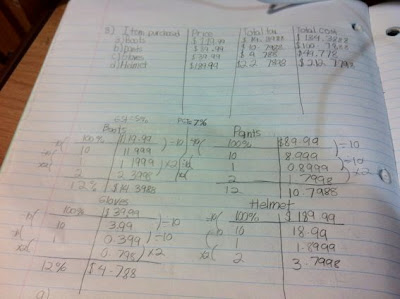 8) Item purchased Price Total tax Total cost
a) Boots $119.99 $14.3988 $134.3888
b) Pants $89.99 $10.7988 $100.7888
c) Gloves $39.99 $4.788 $44.778
d) Helmet $189.99 $22.7988 $212.7798
GST=5% PST=7%
Boots
100% $119.99
10 11.999
1 1.1999
2 2.3998
12% $14.3988
Pants
100% $89.99
10 8.999
1 0.8999
2 .7998
12 10.7988
Gloves
100% $39.99
10 3.99
1 0.399
2 0.798
12% $4.788
Helmet
100% $189.99
10 18.99
1 1.8999
2 3.7998